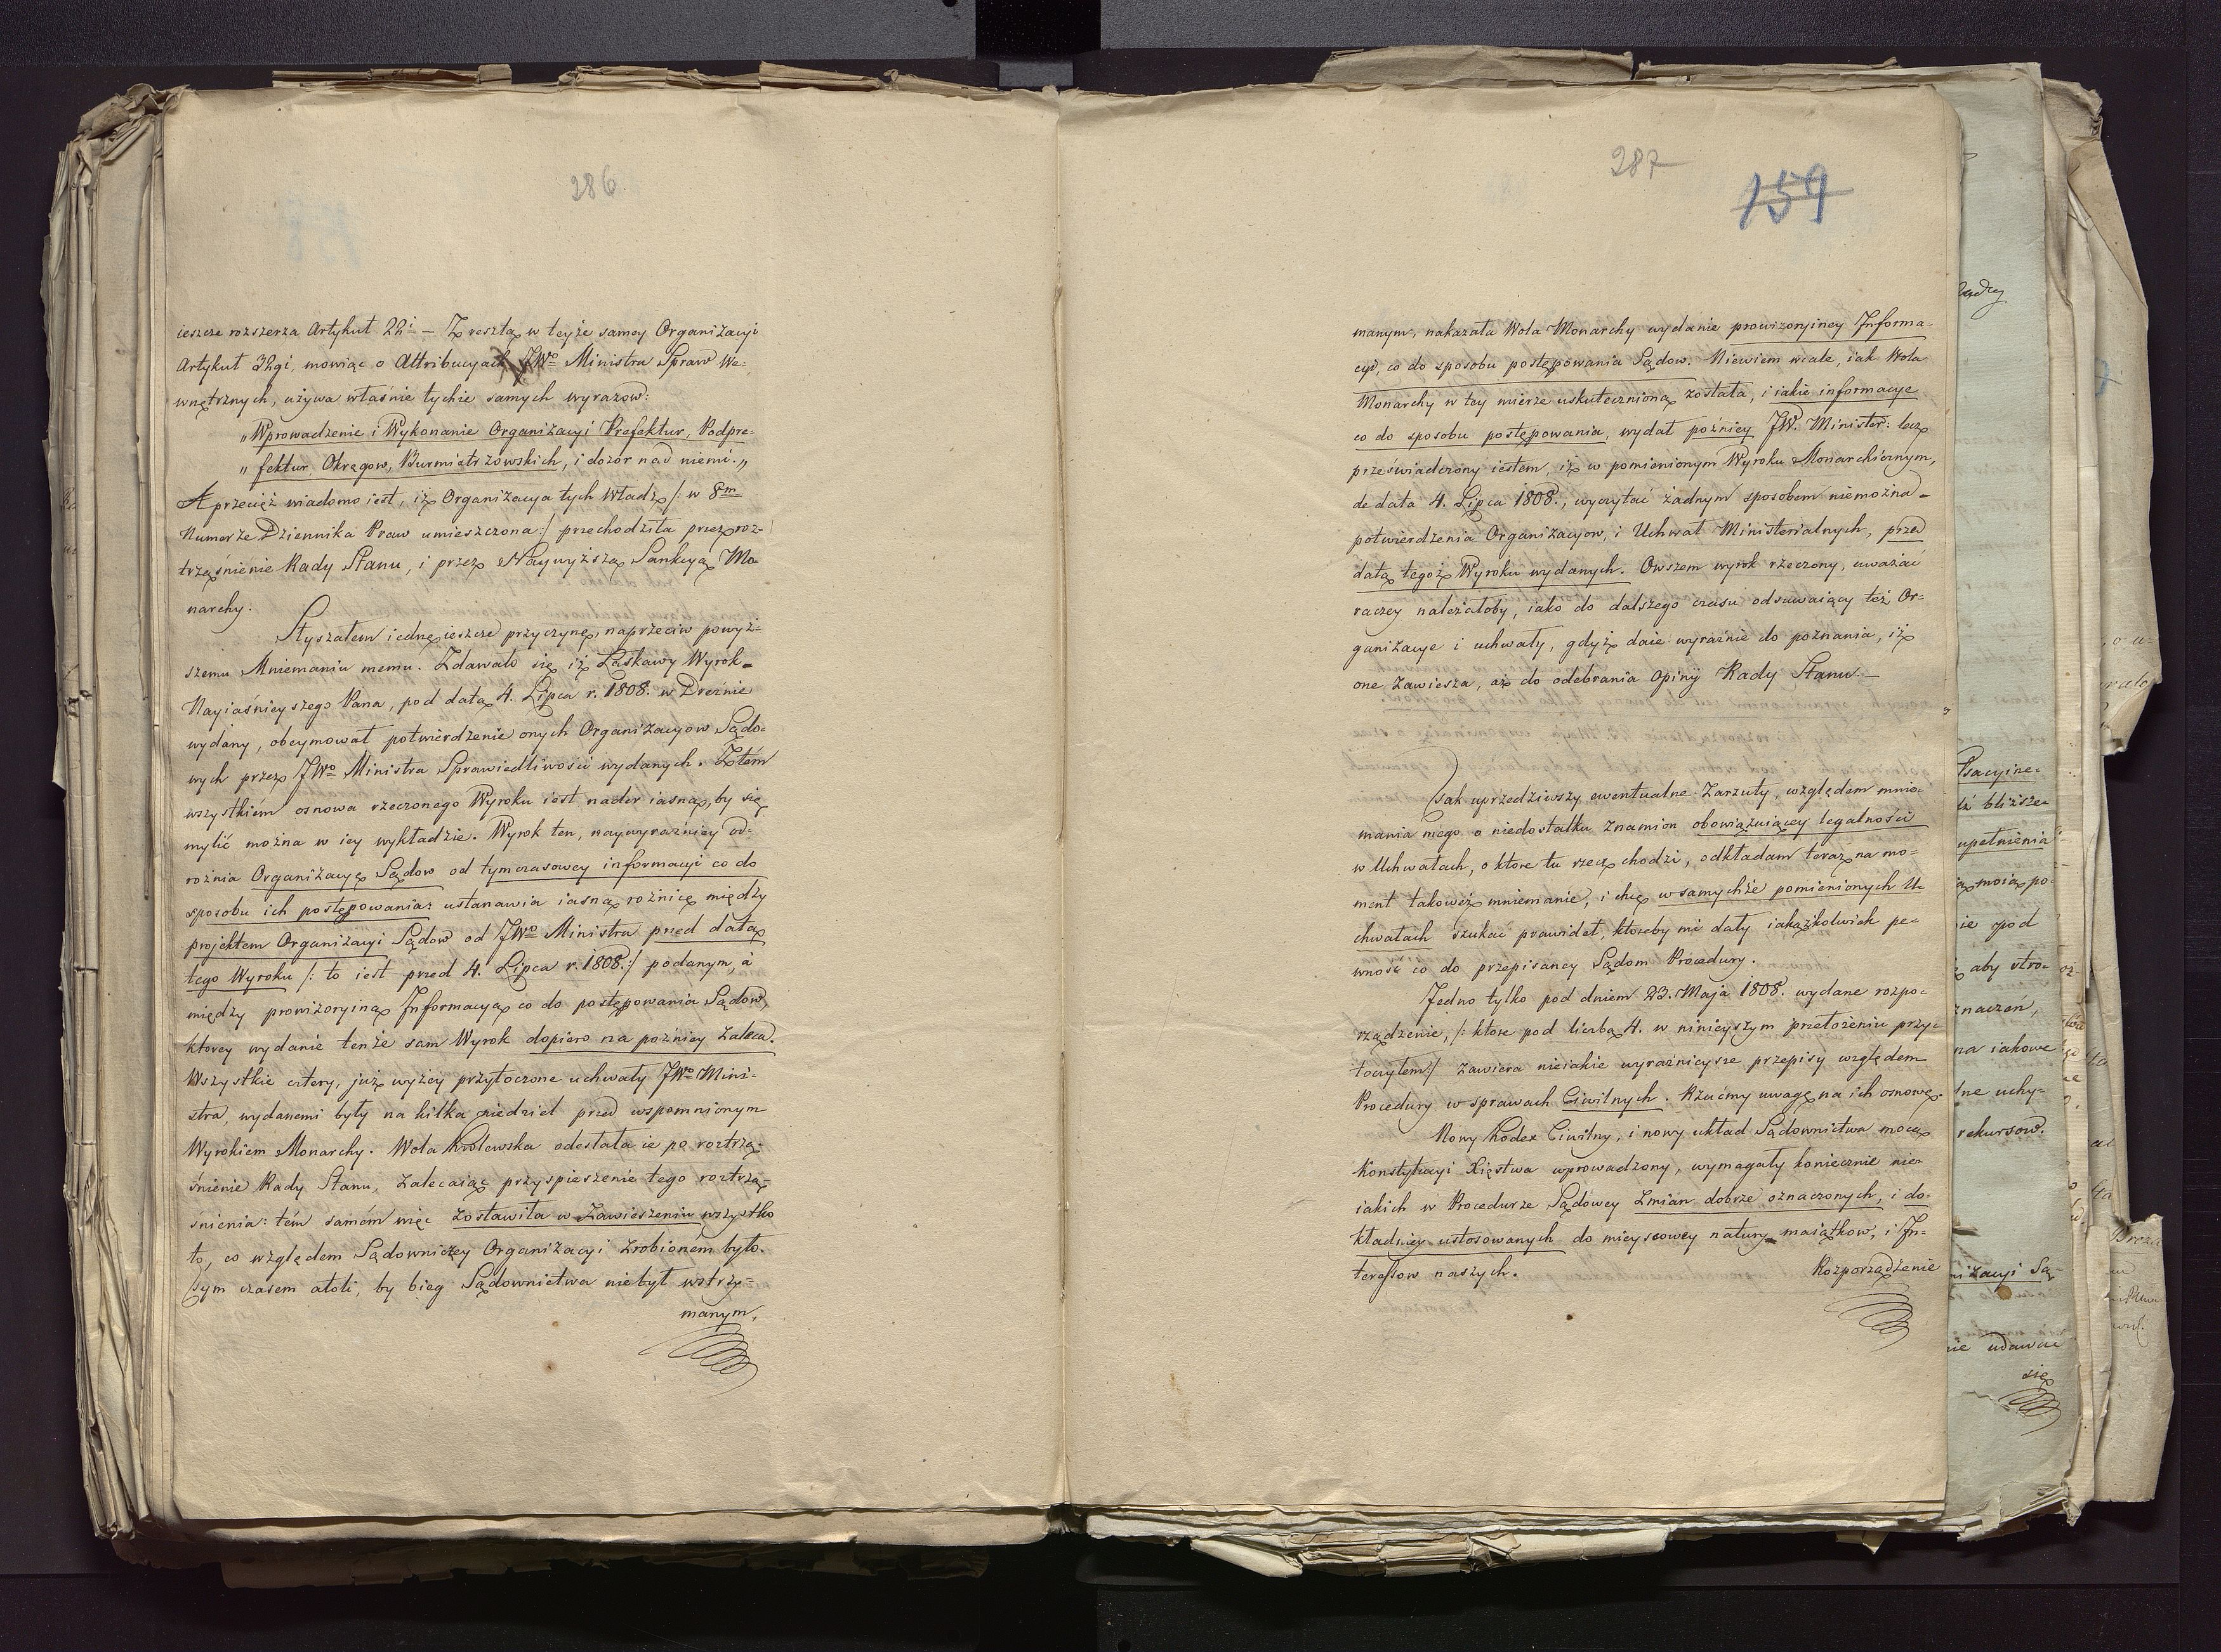 286
ieszcze rozszerza Artykuł 22i — Zresztą w teyże samey Organizacyi
Artykuł 32gi, mowiąc o Attribucyach JWo Ministra Spraw We-
wnętrznych, używa właśnie tychże samych wyrazow:
„Wprowadzenie i Wykonanie Organizacyi Prefektur, Podpre-
„fektur, Okręgow, Burmistrzowskich, i dozor nad niemi.„
A przecięż wiadomo iest, iż Organizacya tych Władz /: w 8m
Numerze Dziennika Praw umieszczona :/ przechodziła przez roz-
trząśnienie Rady Stanu, i przez Naywyższą Sankcyą Mo-
narchy.
Słyszałem iednę ieszcze przyczynę, naprzeciw powyż-
szemu Mniemaniu memu. Zdawało się iż Łaskawy Wyrok
Nayiaśnieyszego Pana, pod datą 4. Lipca r. 1808. w Dreźnie
wydany, obeymował potwierdzenie onych Organizacyow Sądo-
wych przez JWo Ministra Sprawiedliwości wydanych. Ztém
wszystkiém osnowa rzeczonego Wyroku iest nader iasną, by się
mylić można w iey wykładzie. Wyrok ten, naywyraźniey od-
rożnia Organizacyę Sądow od tymczasowey informacyi co do
sposobu ich postępowania: ustanawia iasną rożnicę między
projektem Organizacyi Sądow od JWo Ministra przed datą
tego Wyroku /: to iest przed 4. Lipca r. 1808. :/ podanym, a
między prowizoryiną Informacyą co do postępowania Sądow,
ktorey wydanie tenże sam Wyrok dopiero na poźniey zaleca.
Wszystkie cztery, już wyżey przytoczone uchwały JWo Mini-
stra, wydanemi były na kilka niedziel przed wspomnionym
Wyrokiem Monarchy. Wola Krolewska odesłała ie po roztrzą-
śnienie Rady Stanu, zalecaiąc przyspieszenie tego roztrzą-
śnienia: tém samém więc zostawiła w Zawieszeniu wszystko
to, co względem Sądowniczey Organizacyi zrobioném było.
Tym czasem atoli, by bieg Sądownictwa niebył wstrzy-
manym,
287
159
manym, nakazała Wola Monarchy wydanie prowizoryiney Informa-
cyi, co do sposobu postępowania Sądow. Niewiem wcale, iak Wola
Monarchy w tey mierze uskutecznioną została, i iakie informacye
co do sposobu postępowania, wydał poźniey JW. Minister: lecz
przeświadczony iestem, iż w pomienionym Wyroku Monarchicznym,
de data 4. Lipca 1808., wyczytać żadnym sposobem niemożna
potwierdzenia Organizacyow, i Uchwał Ministerialnych, przed
datą tegoż Wyroku wydanych. Owszem wyrok rzeczony, uważać
raczey należałoby, iako do dalszego czasu odsuwaiący też Or-
ganizacye i uchwały, gdyż daie wyraźnie do poznania, iż
one zawiesza, aż do odebrania Opiniy Rady Stanu.—
Tak uprzedziwszy ewentualne Zarzuty, względem mnie-
mania mego o niedostatku znamion obowiązuiącey legalności
w Uchwałach, o ktore tu rzecz chodzi, odkładam teraz na mo-
ment takoweż mniemanie, i chcę w samychże pomienionych U-
chwałach szukać prawideł, ktoreby mi dały iakążkolwiek pe-
wność co do przepisaney Sądom Procedury.
Jedno tylko pod dniem 23. Maja 1808. wydane rozpo-
rządzenie, /: ktore pod liczbą 4. w ninieyszym przełożeniu przy-
toczyłem :/ zawiera nieiakie wyraźnieysze przepisy względem
Procedury w sprawach Ciwilnych. Rzućmy uwagę na ich osnowę.
Nowy Kodex Ciwilny, i nowy układ Sądownictwa mocą
Konstytucyi Xięstwa wprowadzony, wymagały koniecznie nie-
iakich w Procedurze Sądowey Zmian dobrze oznaczonych, i do-
kładniey ustosowanych do mieyscowey natury maiątkow, i In-
teressow naszych.
Rozporządzenie